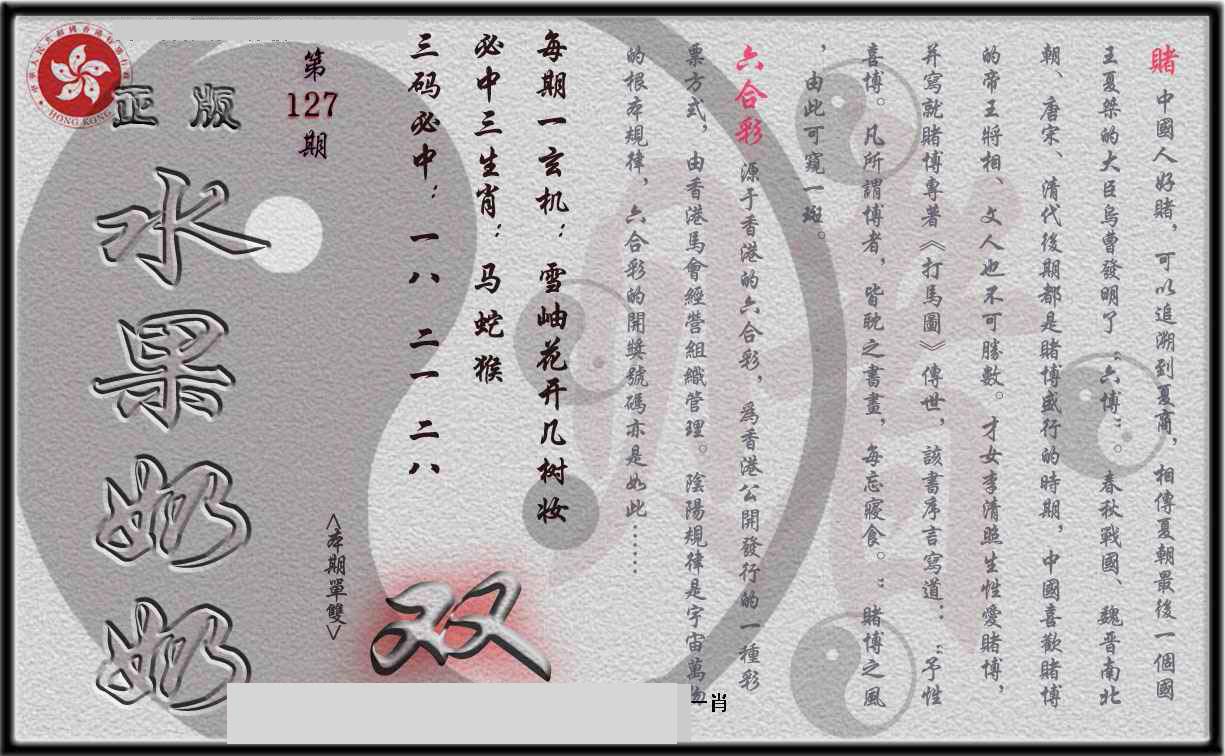 賭 中國人好賭，可以追溯到夏商，相傳夏朝最後一個國
王夏桀的大臣烏曹發明了“六博”。春秋戰國、魏晋南北
朝、唐宋、清代後期都是賭博盛行的時期，中國喜歡賭博
的帝王將相、文人也不可勝數。才女李清照生性愛賭博，
并寫就賭博專著《打馬圖》傳世，該書序言寫道：“予性
喜博。凡所謂博者，皆耽之書畫，每忘寢食。”賭博之風
，由此可窺一斑。
六合彩 源于香港的六合彩，爲香港公開發行的一種彩
票方式，由香港馬會經營組織管理。陰陽規律是宇宙萬物
的根本規律，六合彩的開獎號碼亦是如此……
每期一玄机：雪岫花开几树妆
必中三生肖：马蛇猴
三码必中：一八 二一 二八
第127期
<本期單雙>
双
正版
水果奶奶
HONG KONG
一肖